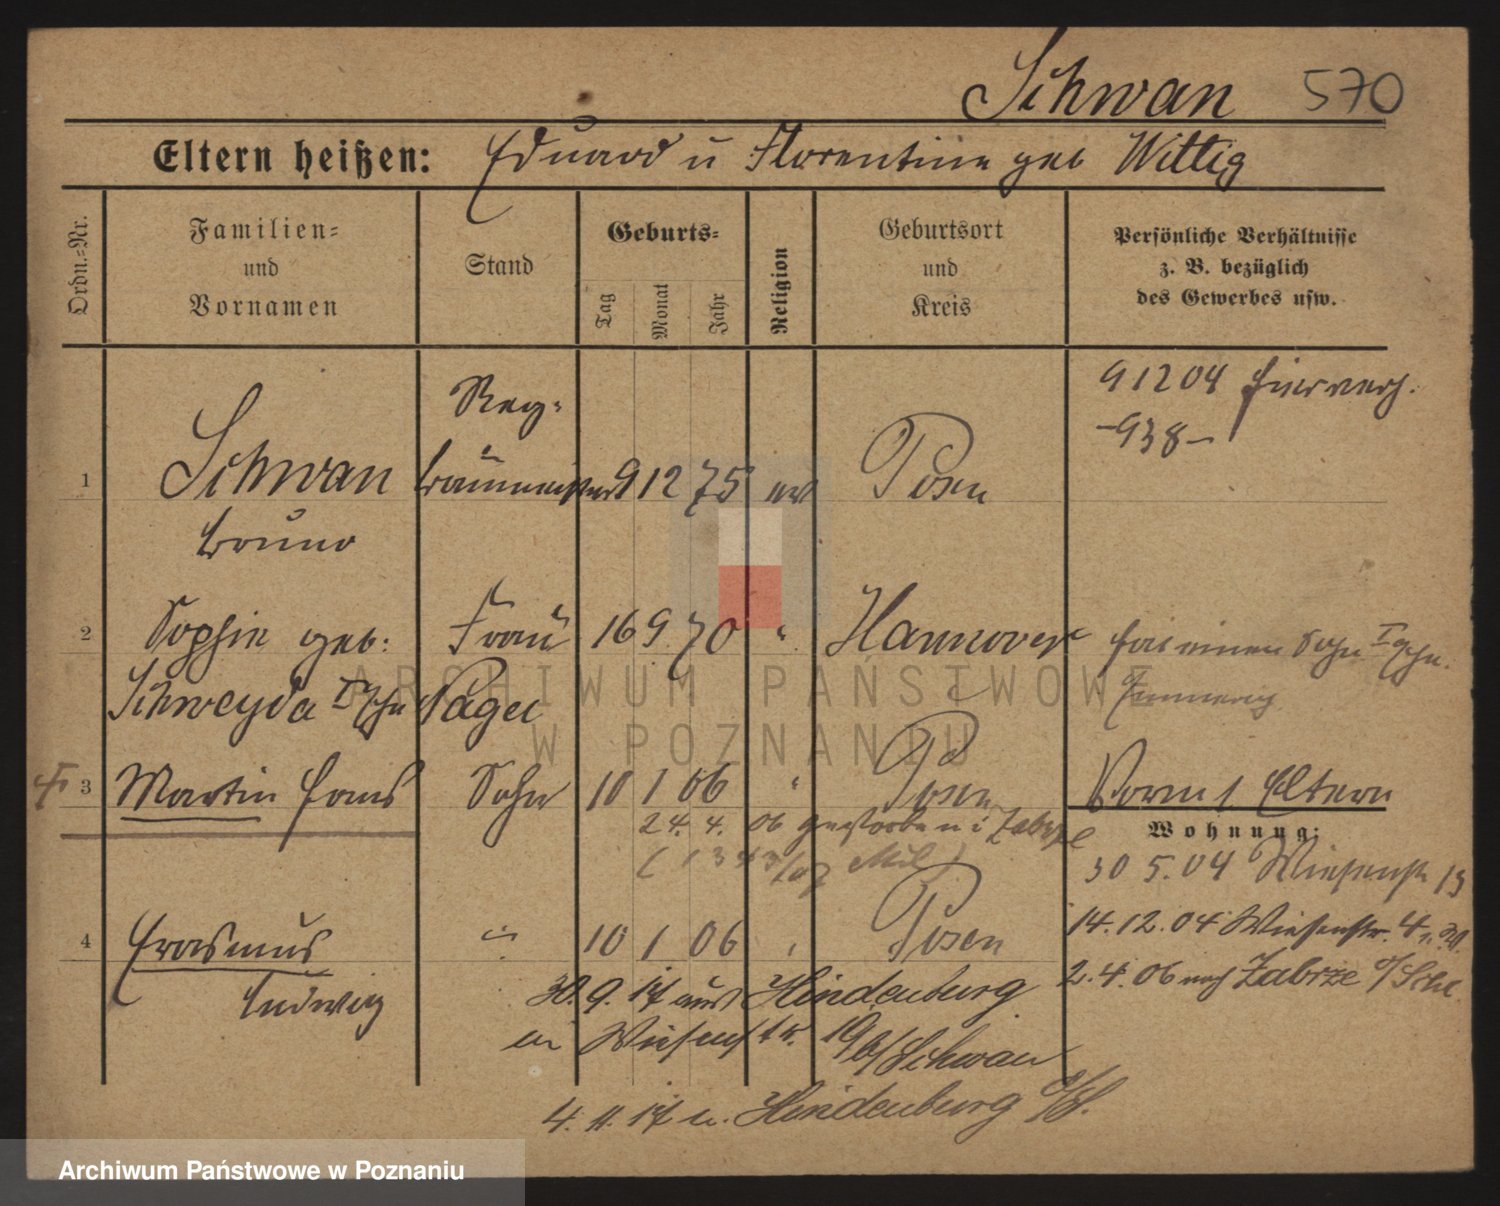 Schwan 570
Eltern heißen: Eduard u Florentine geb Wittig
Ordn.-Nr.
Familien-
und
Vornamen
Stand
Geburts-
Tag
Monat
Jahr
Religion
Geburtsort
und
Kreis
Persönliche Verhältnisse
z. B. bezüglich
des Gewerbes usw.
Reg-
9 12 04 hier verh.
-938-
1 Schwan Baumeister 9 12 75 ev Posen
Bruno
2 Sophie geb: Frau 16 9 70 " Hannover hat einen Sohn I Ehe
Schweyda I Ehe Pagel
3 Martin Hans Sohn 10 1 06 " Posen Vorm 1 Eltern
24. 4. 06 gestorben i Zabrze
Wohnung:
30 5. 04 Wiesenstr 13
4 Erasmus " 10 1 06 " Posen
14. 12. 04 Wiesenstr. 4
Ludwig
2. 4. 06 nach Zabrze O/Schl.
30. 9. 17 aus Hindenburg
in Wiesenstr. 19 b/Schwan
4. 11. 17 n. Hindenburg O/S.
ARCHIWUM PAŃSTWOWE
W POZNANIU
Archiwum Państwowe w Poznaniu